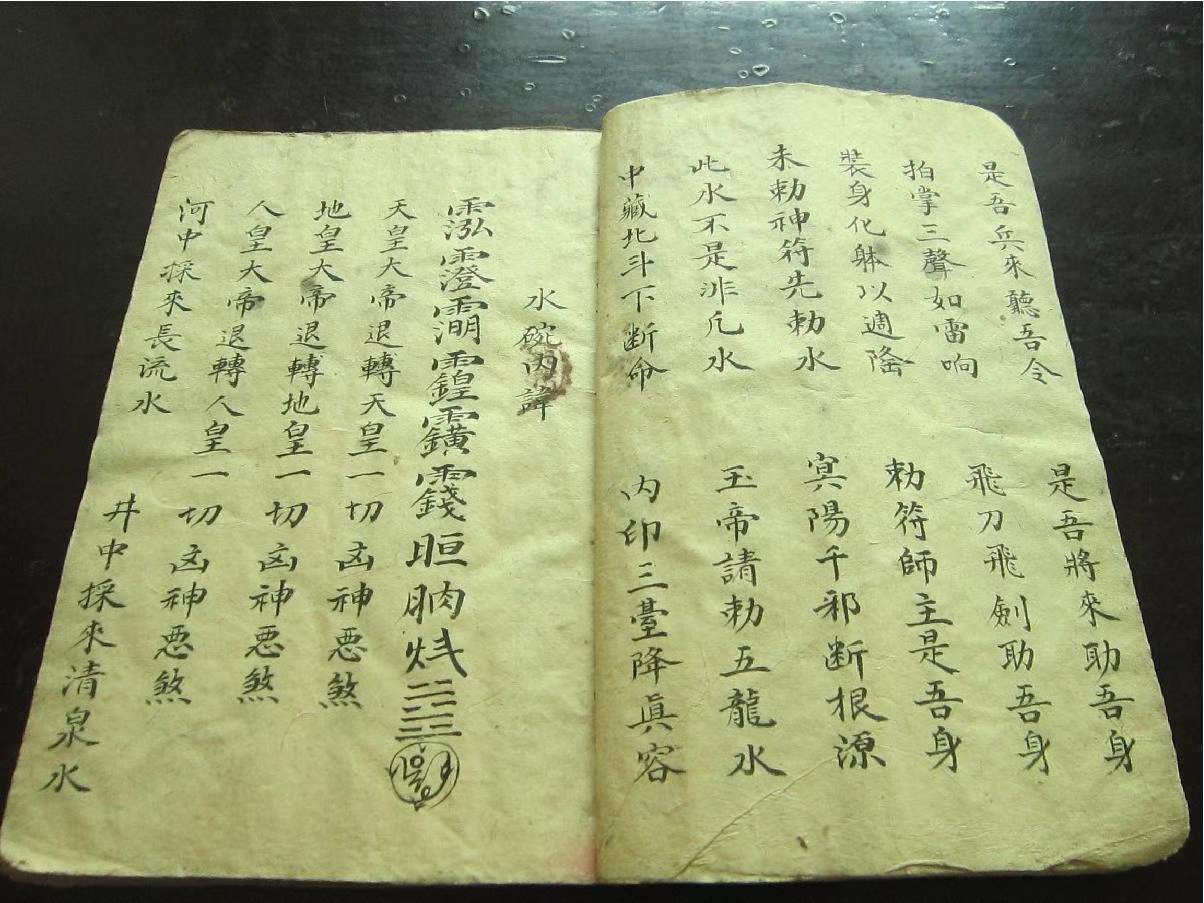 是吾兵來聽吾令 是吾將來助吾身
拍掌三聲如雷响 飛刀飛劍助吾身
裝身化躰以週隆 勅符師主是吾身
未勅神符先勅水 冥陽千邪断根源
此水不是非凢水 玉帝請勅五龍水
中藏北斗下断命 内印三臺降眞容
水碗内諱
天皇大帝退轉天皇一切凶神悪煞
地皇大帝退轉地皇一切凶神悪煞
人皇大帝退轉人皇一切凶神悪煞
河中採來長流水 井中採來清泉水